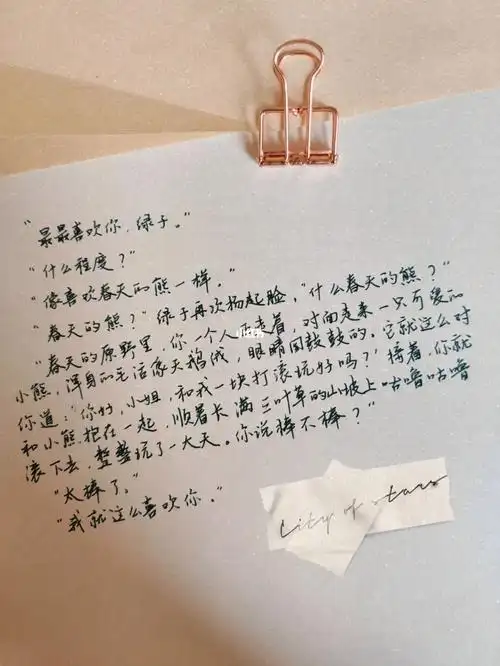 “最最喜欢你，绿子。”
“什么程度？”
“像喜欢春天的熊一样。”
“春天的熊？”绿子再次扬起脸，“什么春天的熊？”
“春天的原野里，你一个人正走着，对面走来一只可爱的
小熊，浑身的毛活像天鹅绒，眼睛圆鼓鼓的。它就这么对
你道：‘你好，小姐，和我一块打滚玩好吗？’接着，你就
和小熊抱在一起，顺着长满三叶草的山坡上咕噜咕噜
滚下去，整整玩了一大天。你说棒不棒？”
“太棒了。”
“我就这么喜欢你。”
City of stars